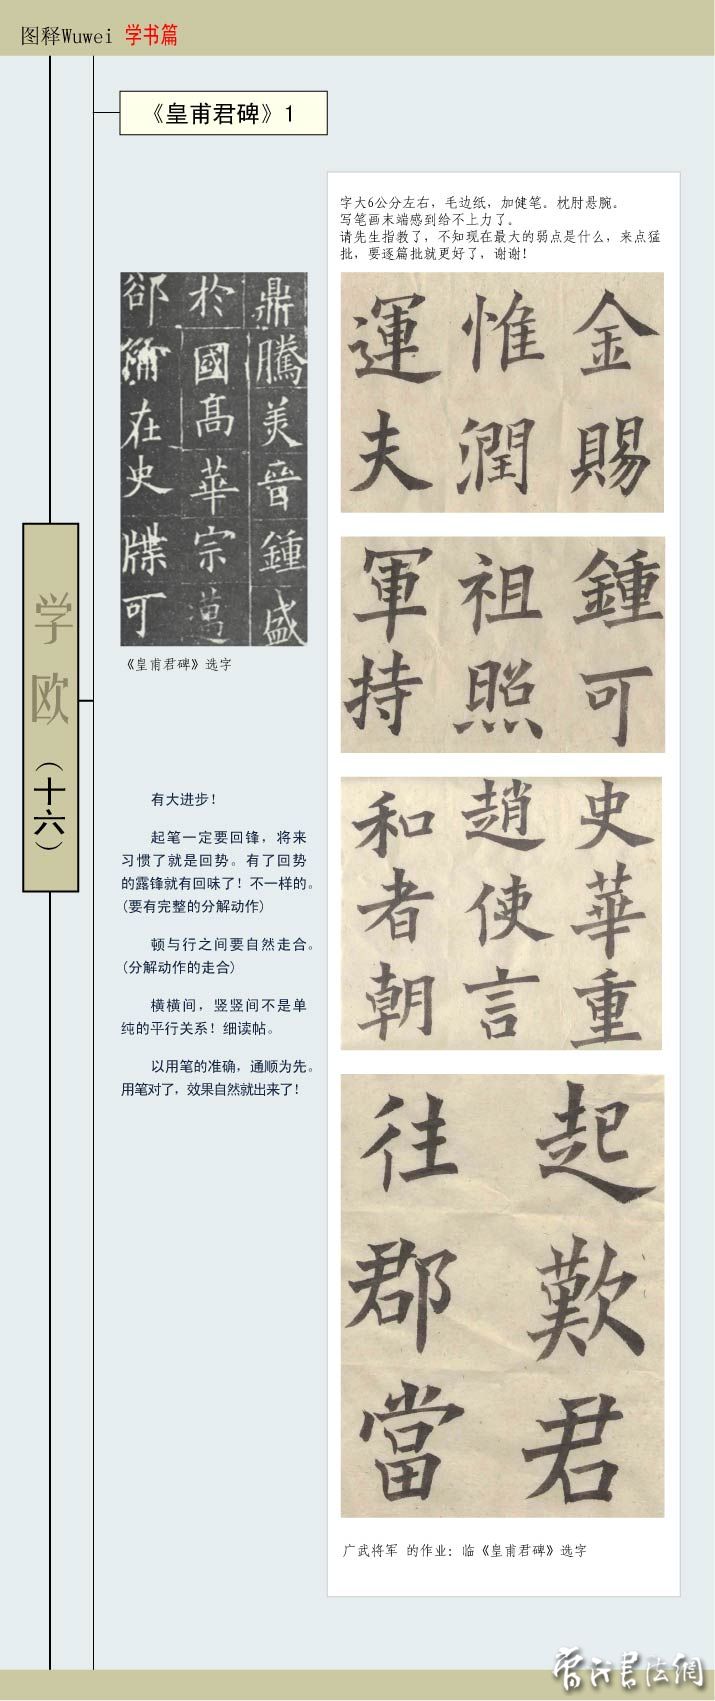 图释Wuwei 学书篇
《皇甫君碑》1
学欧(十六)
字大6公分左右，毛边纸，加健笔。枕肘悬腕。
写笔画末端感到给不上力了。
请先生指教了，不知现在最大的弱点是什么，来点猛
批，要逐篇批就更好了，谢谢！
鼎騰美晉鍾盛
於國髙華宗
郤在史牒可
《皇甫君碑》选字
有大进步！
起笔一定要回锋，将来
习惯了就是回势。有了回势
的露锋就有回味了！不一样的。
(要有完整的分解动作)
顿与行之间要自然走合。
(分解动作的走合)
横横间，竖竖间不是单
纯的平行关系！细读帖。
以用笔的准确，通顺为先。
用笔对了，效果自然就出来了！
金賜
惟潤
運夫
鍾可
祖照
軍持
史華重
趙使言
和者朝
起歎君
往郡當
广武将军 的作业：临《皇甫君碑》选字